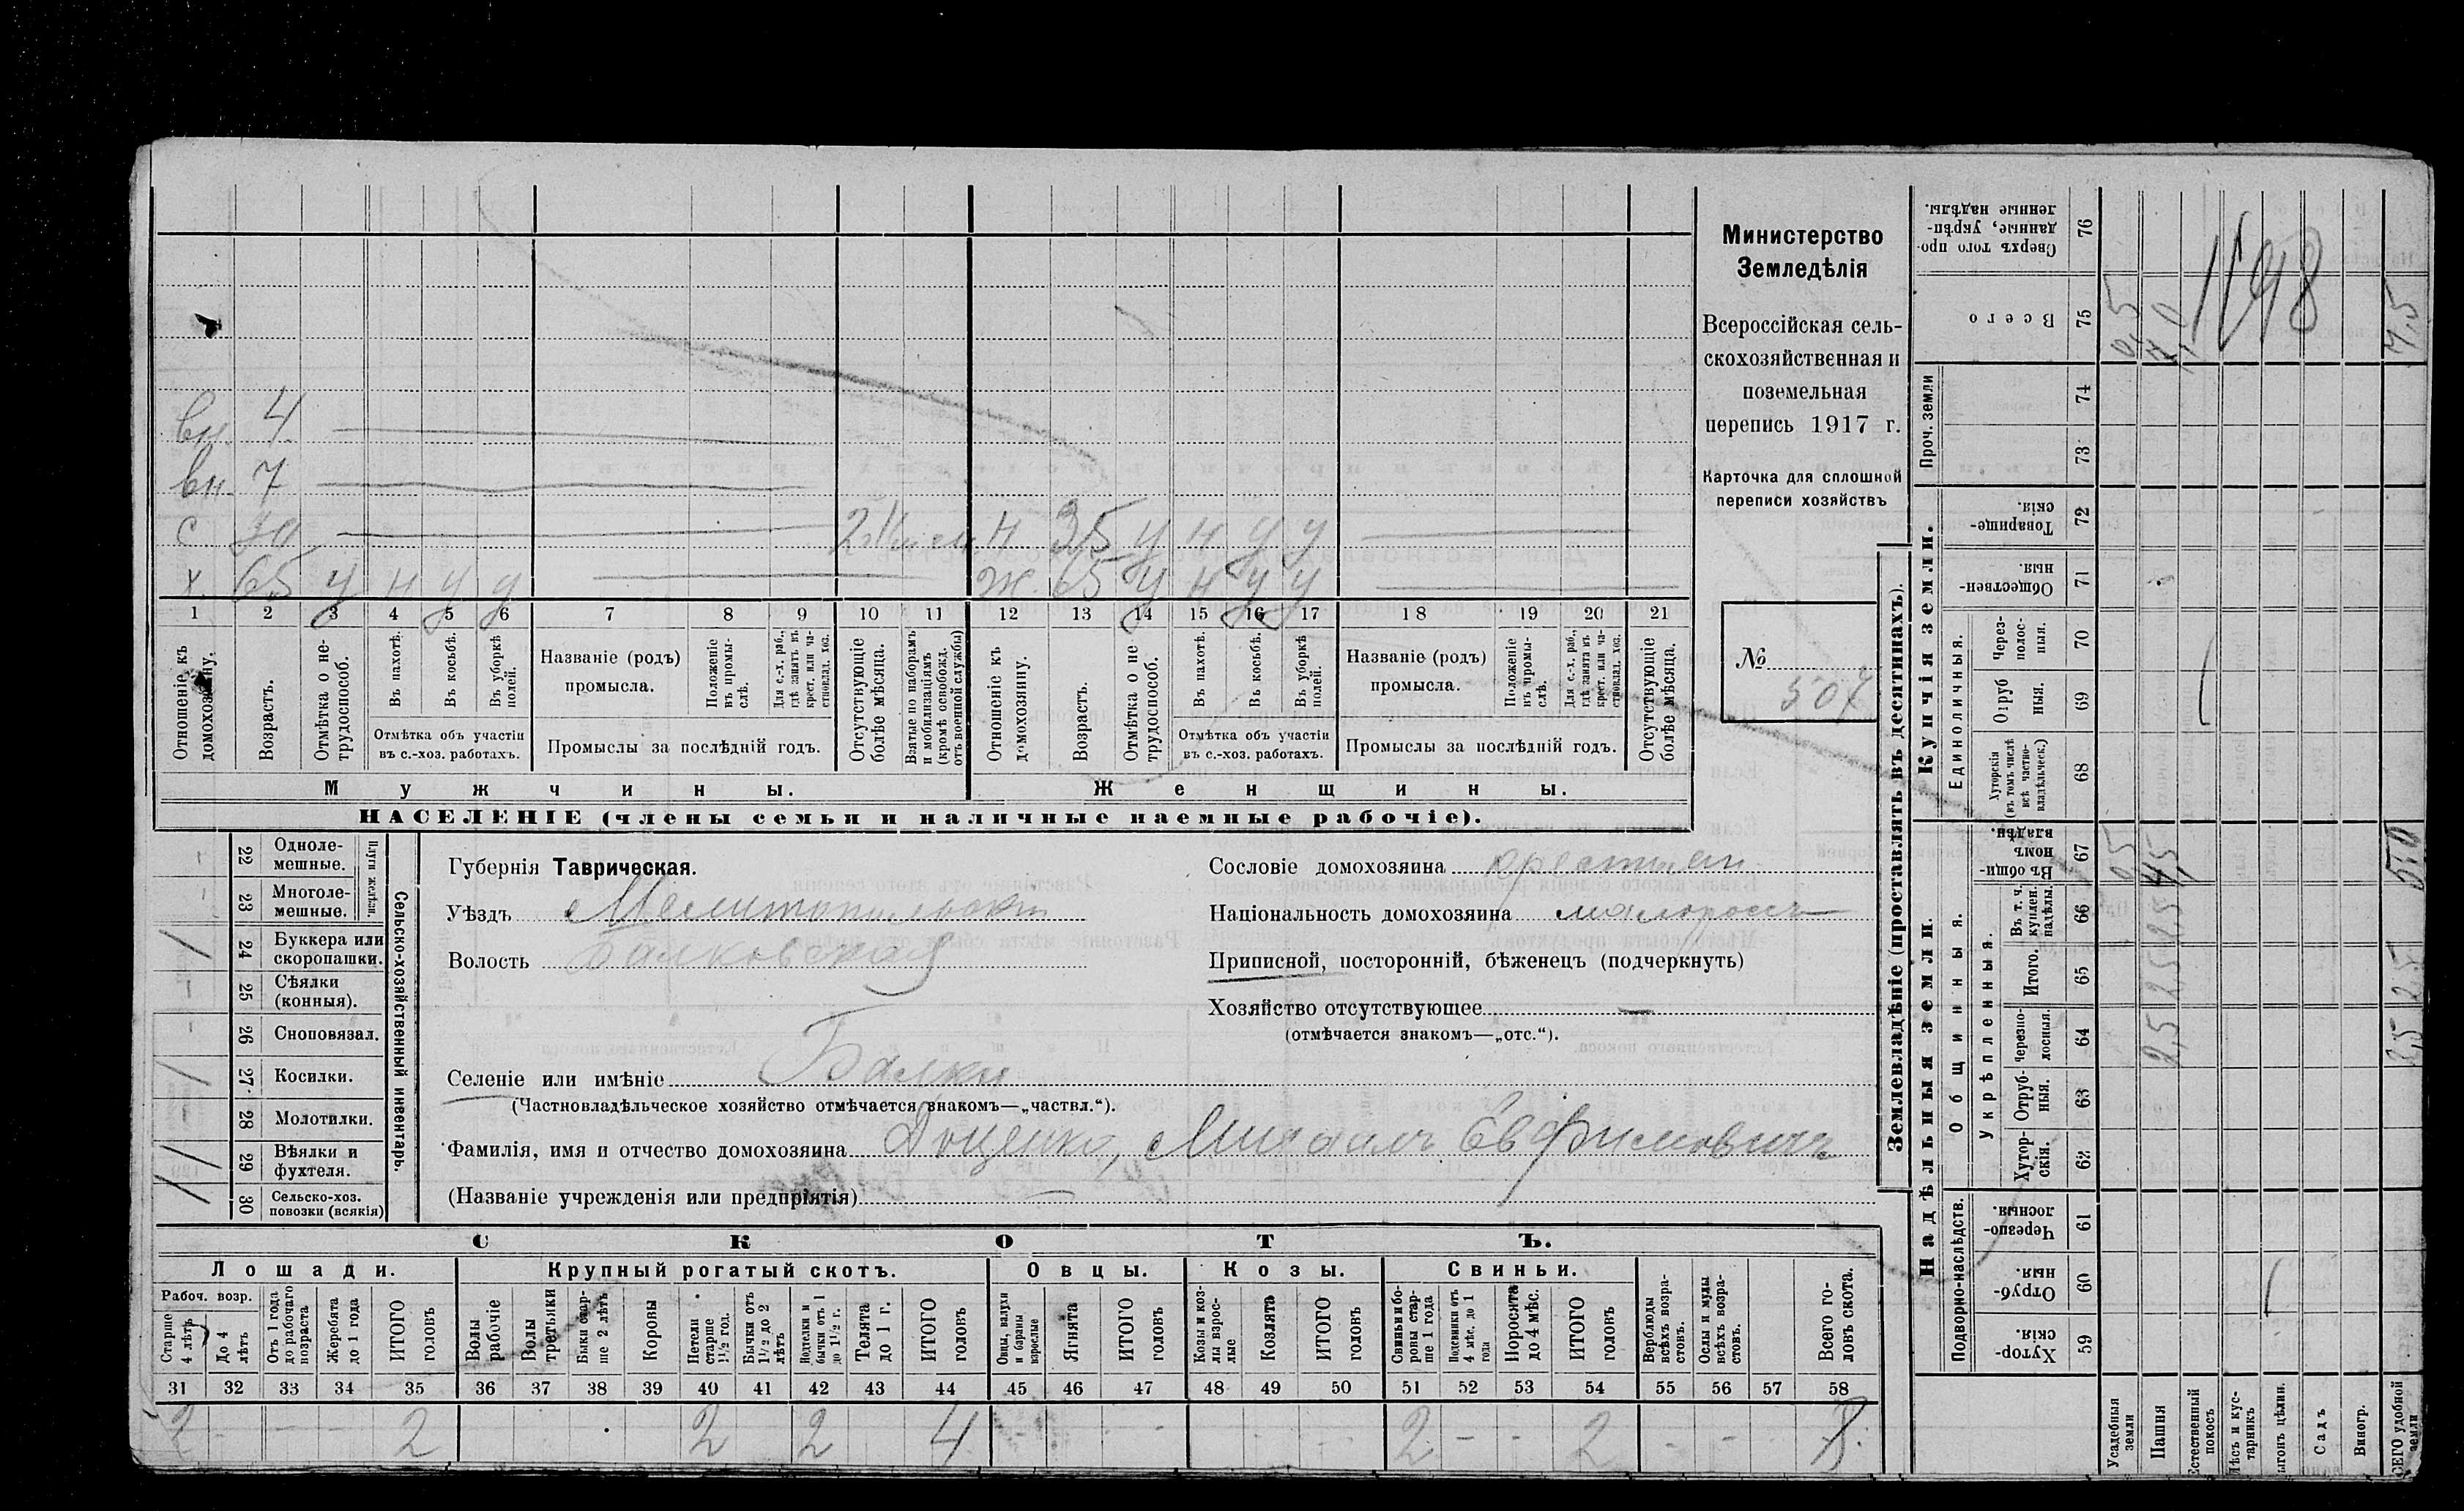 Министерство
Земледѣлія
Всероссійская сель-
скохозяйственная и
поземельная
перепись 1917 г.
Карточка для сплошной
переписи хозяйствъ
№ 507
вн. 4
вн. 7
с 2 н 35 у н у у
х. 65 у н у у ж. 65 у н у у
1 2 3 4 5 6 7 8 9 10 11 12 13 14 15 16 17 18 19 20 21
Отношеніе къ домохозяину.
Возрастъ.
Отмѣтка о не-трудоспособ.
Въ пахотѣ.
Въ косьбѣ.
Въ уборкѣ полей.
Отмѣтка объ участіи
въ с.-хоз. работахъ.
Названіе (родъ)
промысла.
Положеніе въ промы-слѣ.
Для с.-х. раб., гдѣ занятъ въ крест. или ча-стновлад. хоз.
Промыслы за послѣдній годъ.
Отсутствующіе болѣе мѣсяца.
Взятые по наборамъ и мобилизаціямъ (кромѣ освобожд. отъ военной службы)
Отношеніе къ домохозяину.
Возрастъ.
Отмѣтка о не трудоспособ.
Въ пахотѣ.
Въ косьбѣ.
Въ уборкѣ полей.
Отмѣтка объ участіи
въ с.-хоз. работахъ.
Названіе (родъ)
промысла.
Положеніе въ промы-слѣ.
Для с.-х. раб., гдѣ занятъ въ крест. или ча-стновлад. хоз.
Промыслы за послѣдній годъ.
Отсутствующіе болѣе мѣсяца.
Мужчины. Женщины.
НАСЕЛЕНІЕ (члены семьи и наличные наемные рабочіе).
Сельско-хозяйственный инвентарь.
Плуги желѣзн.
22 Однолемешные.
23 Многолемешные.
/ 24 Буккера или скоропашки.
25 Сѣялки (конныя).
26 Сноповязал.
/ 27 Косилки.
28 Молотилки.
/ 29 Вѣялки и фухтеля.
30 Сельско-хоз. повозки (всякія)
Губернія Таврическая.
Уѣздъ Мелитопольскій
Волость Балковская
Селеніе или имѣніе Балки
(Частновладѣльческое хозяйство отмѣчается знакомъ—„частвл.“).
Фамилія, имя и отчество домохозяина Доценко, Михаилъ Евфимовичъ
(Названіе учрежденія или предпріятія)
Сословіе домохозяина крестьян.
Національность домохозяина малороссъ
Приписной, посторонній, бѣженецъ (подчеркнуть)
Хозяйство отсутствующее —
(отмѣчается знакомъ—„отс.“).
СКОТЪ.
Лошади. Крупный рогатый скотъ. Овцы. Козы. Свиньи.
Рабоч. возр.
Старше 4 лѣтъ
До 4 лѣтъ
Отъ 1 года до рабочаго возраста
Жеребята до 1 года
ИТОГО головъ
Волы рабочіе
Волы третьяки
Быки стар-ше 2 лѣтъ
Коровы
Петели старше 1½ год.
Бычки отъ 1½ до 2 лѣтъ
Подтелки и бычки отъ 1 до 1½ г.
Телята до 1 г.
ИТОГО головъ
Овцы, валухи и бараны взрослые
Ягнята
ИТОГО головъ
Козы и коз-лы взрос-лые
Козлята
ИТОГО головъ
Свиньи и бо-роны стар-ше 1 года
Подсвинки отъ 4 мѣс. до 1 года
Поросята до 4 мѣс.
ИТОГО головъ
Верблюды всѣхъ возра-стовъ.
Ослы и мулы всѣхъ возра-стовъ.
Всего го-ловъ скота.
31 32 33 34 35 36 37 38 39 40 41 42 43 44 45 46 47 48 49 50 51 52 53 54 55 56 57 58
2 - - - 2 2 2 4 2 - - 2 - - 8
Землевладѣніе (проставлять въ десятинахъ).
Купчія земли.
Надѣльныя земли.
Сверхъ того про-данные, укрѣп-ленные надѣлы. 76
Всего 75 0,5 4,0 4,5
1198
Проч. земли 74
73
Товарище-скія. 72
Обществен-ныя. 71
Единоличныя.
Через-полос-ныя. 70
Отруб ныя. 69
Хуторскія (въ томъ числѣ всѣ частно-владѣльческ.) 68
Общинныя.
Въ общин-номъ владѣн. 67 0,5 4,5 5,0
Укрѣпленныя.
Въ т. ч. куплен. надѣлы. 66 2,5
Итого. 65 2,5 2,5
Черезпо-лосныя. 64 2,5 2,5
Отруб-ныя. 63
Хутор-скія. 62
Подворно-наслѣдств.
Черезпо-лосныя. 61
Отруб-ныя. 60
Хутор-скія. 59
Усадебныя земли
Пашня
Естественный покосъ
Лѣсъ и кус-тарникъ
ыгонъ цѣлин.
Садъ
Виногр.
СЕГО удобной земли